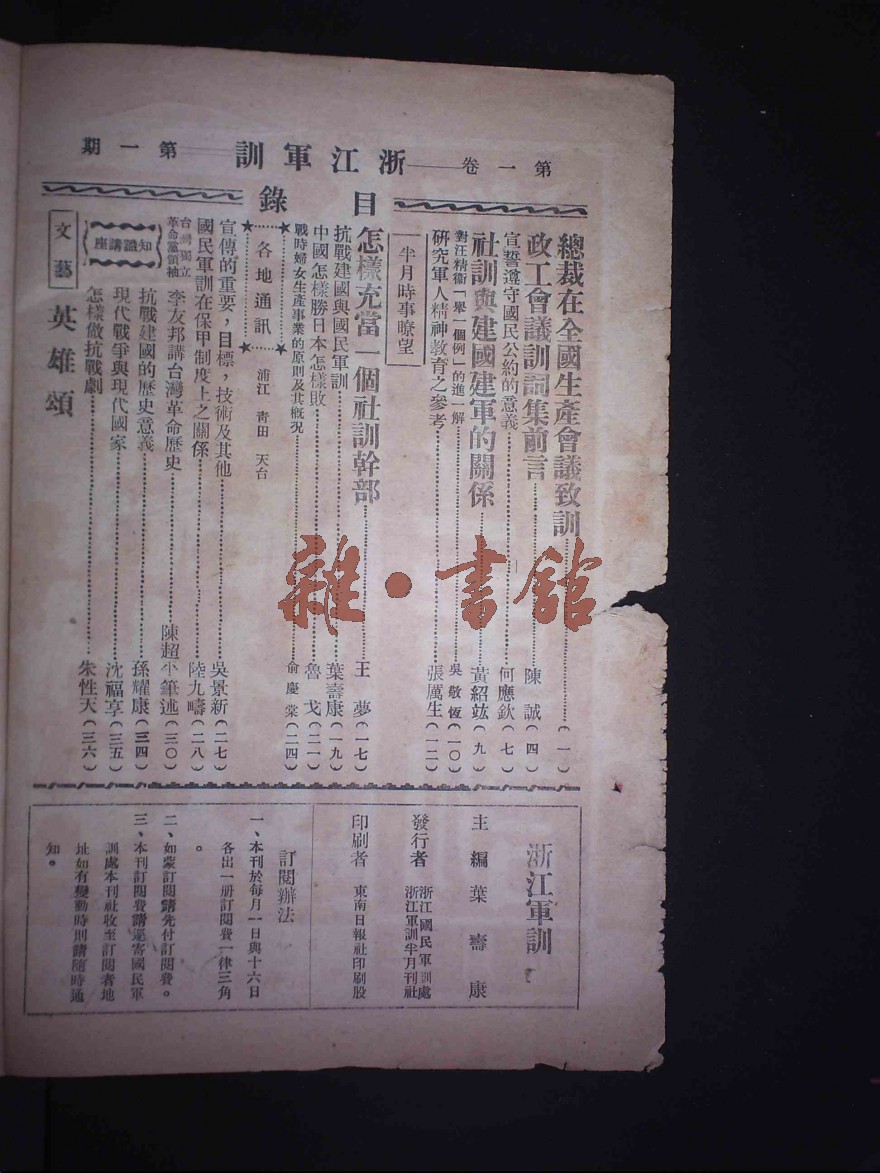 第一卷——浙江軍訓——第一期
目錄
總裁在全國生產會議致訓……(一)
政工會議訓詞集前言……陳誠(四)
宣誓遵守國民公約的意義……何應欽(七)
社訓與建國建軍的關係……黃紹竑(九)
對汪精衞「舉一個例」的進一解……吳敬恆(一〇)
研究軍人精神教育之參考……張厲生(一二)
半月時事瞭望
怎樣充當一個社訓幹部……王夢(一七)
抗戰建國與國民軍訓……葉壽康(一九)
中國怎樣勝日本怎樣敗……魯戈(二一)
戰時婦女生產事業的原則及其概況……俞慶棠(二四)
各地通訊……浦江 青田 天台
宣傳的重要，目標，技術及其他……吳景新(二七)
國民軍訓在保甲制度上之關係……陸九疇(二八)
台灣獨立革命黨領袖 李友邦講台灣革命歷史……陳超 筆述(三〇)
知識講座
抗戰建國的歷史意義……孫耀康(三四)
現代戰爭與現代國家……沈福享(三五)
怎樣做抗戰劇……朱性天(三六)
文藝 英雄頌
浙江軍訓
主編 葉壽康
發行者 浙江國民軍訓處
浙江軍訓半月刊社
印刷者 東南日報社印刷股
訂閱辦法
一、本刊於每月一日與十六日
各出一册訂閱費一律三角
。
二、如蒙訂閱請先付訂閱費。
三、本刊訂閱費請逕寄國民軍
訓處本刊社收至訂閱者地
址如有變動時則請隨時通
知。
雜·書館